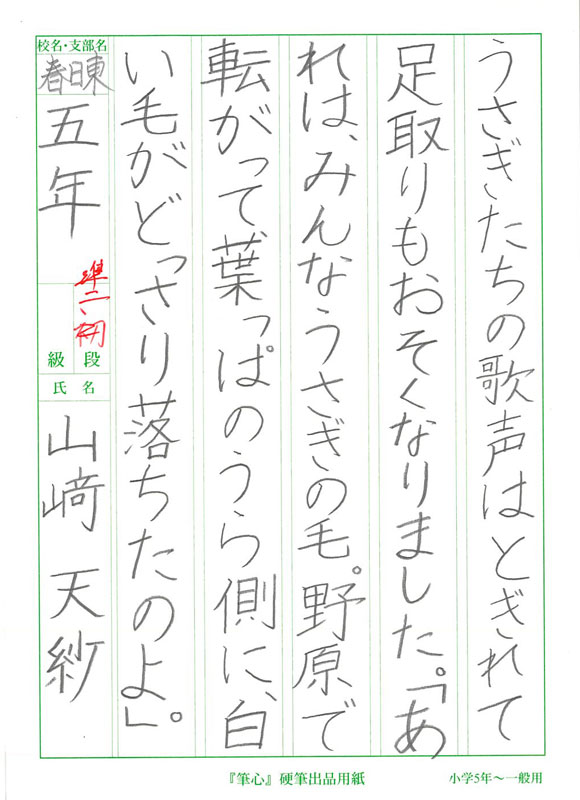 うさぎたちの歌声はとぎれて
足取りもおそくなりました。「あ
れは、みんなうさぎの毛。野原で
転がって、葉っぱのうら側に、白
い毛がどっさり落ちたのよ」。
校名・支部名
春日東
五年
準二、初
級 段
氏 名
山﨑 天紗
『筆心』硬筆出品用紙
小学5年〜一般用